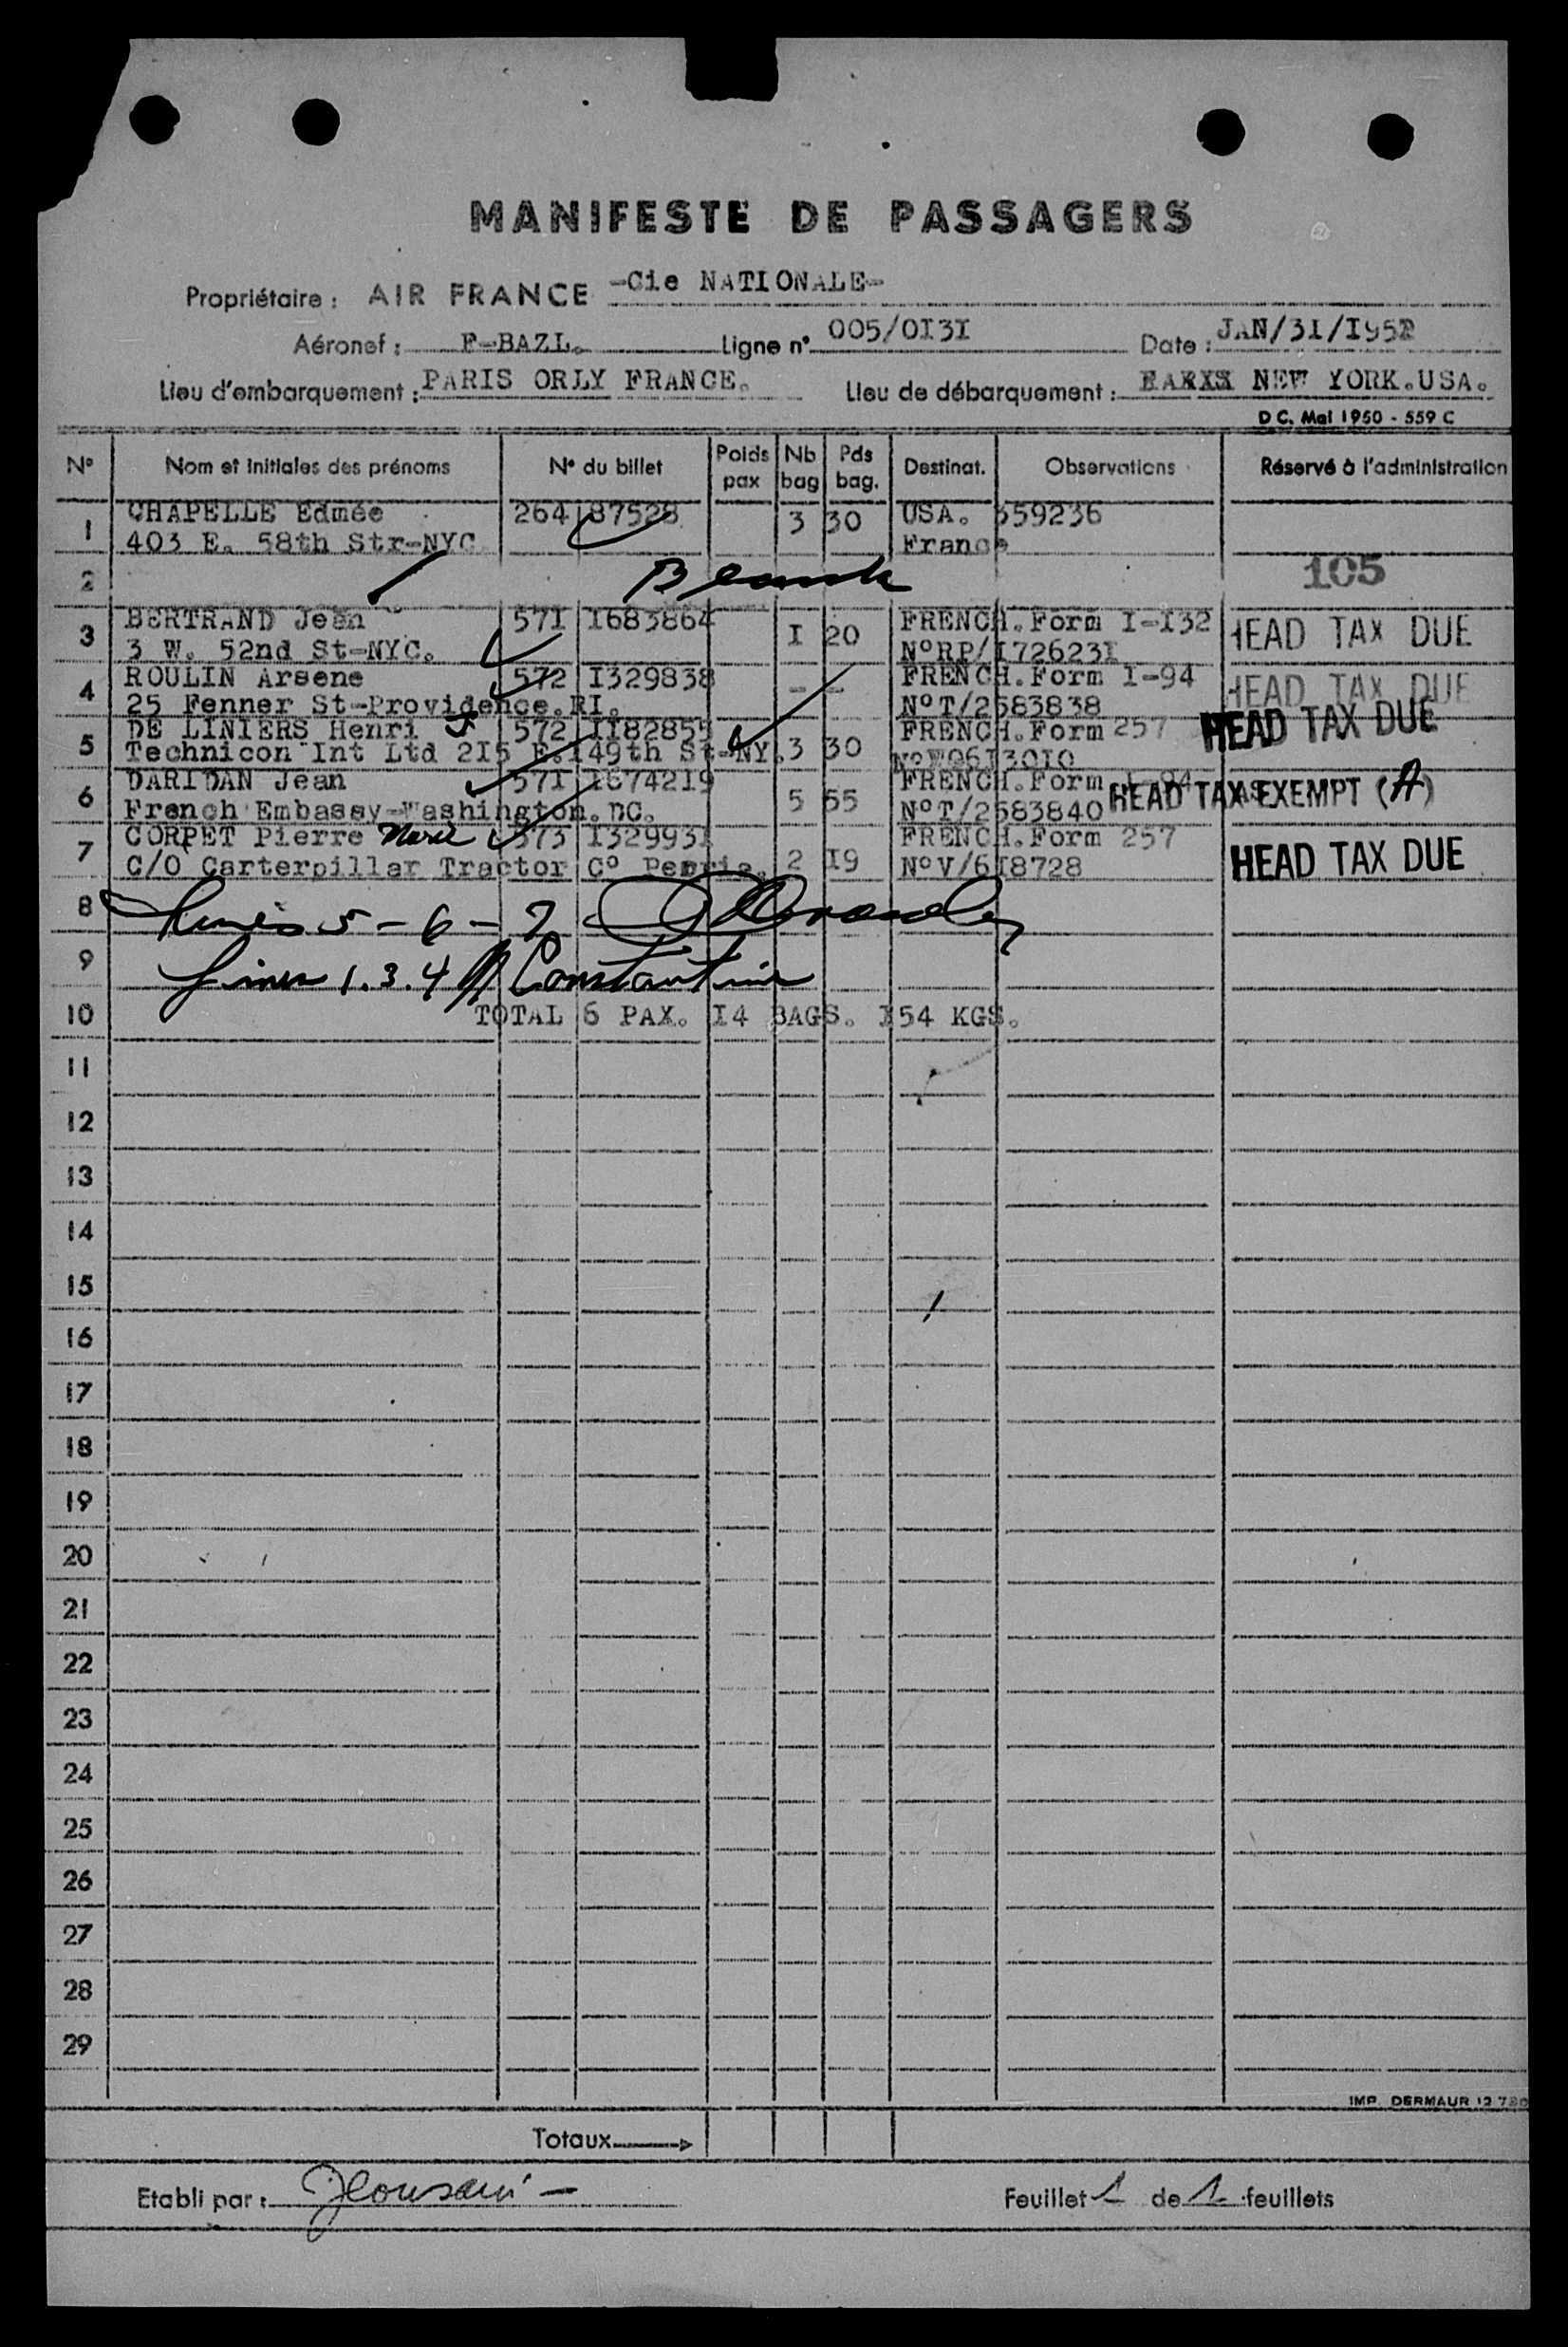 MANIFESTE DE PASSAGERS
Propriétaire : AIR FRANCE -Cie NATIONALE-
Aéronef : F-BAZL. Ligne n° 005/0I3I Date : JAN/31/I952
Lieu d'embarquement : PARIS ORLY FRANCE. Lieu de débarquement : NEW YORK.USA.
D C. Mai 1950 - 559 C
N° Nom et initiales des prénoms N° du billet Poids pax Nb bag Pds bag. Destinat. Observations Réservé à l'administration
1 CHAPELLE Edmée 264 87528 3 30 USA. 359236
403 E. 58th Str-NYC France
2 Blank 105
3 BERTRAND Jean 571 1683864 I 20 FRENCH.Form I-I32 HEAD TAX DUE
3 W. 52nd St-NYC. N°RP/I72623I
4 ROULIN Arsene 572 I329838 - - FRENCH.Form I-94 HEAD TAX DUE
25 Fenner St-Providence.RI. N°T/2583838
5 DE LINIERS Henri J 572 II82855 3 30 FRENCH.Form 257 HEAD TAX DUE
Technicon Int Ltd 2I5 E.I49th St-NY.
6 DARIDAN Jean 571 1674219 5 55 FRENCH.Form I-94 HEAD TAX EXEMPT (A)
French Embassy-Washington.DC. N°T/2583840
7 CORPET Pierre Marie 573 I32993I 2 I9 FRENCH.Form 257 HEAD TAX DUE
C/O Carterpillar Tractor C° Peoria. N°V/6I8728
8 Lines 5 - 6 - 7
9 Lines 1.3.4 Constantine
10 TOTAL 6 PAX. I4 BAGS. I54 KGS.
11
12
13
14
15
16
17
18
19
20
21
22
23
24
25
26
27
28
29
IMP. DERMAUR 12 780
Totaux
Etabli par : Feuillet 1 de 1 feuillets